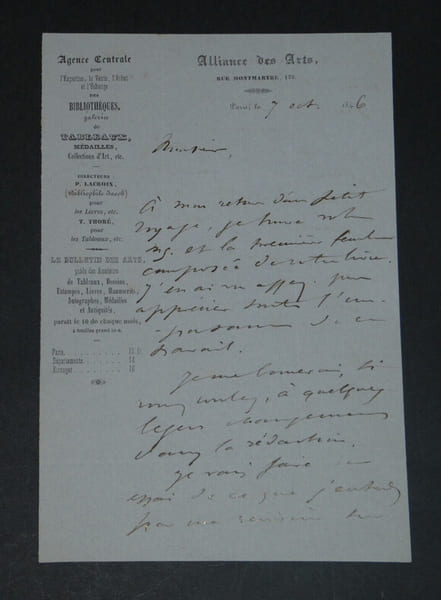 Agence Centrale
pour
l'Expertise, la Vente, l'Achat
et l'Echange
DES
BIBLIOTHÈQUES,
galeries
de
TABLEAUX,
MÉDAILLES,
Collections d'Art, etc.
DIRECTEURS:
P. LACROIX,
(Bibliophile Jacob)
pour
les Livres, etc.
T. THORÉ,
pour
les Tableaux, etc.
LE BULLETIN DES ARTS,
guide des Amateurs
de Tableaux, Dessins,
Estampes, Livres, Manuscrits,
Autographes, Médailles
et Antiquités,
paraît le 10 de chaque mois,
Paris
Départements
Etranger
Alliance des Arts,
RUE MONTMARTRE, 178.
Paris, le 7 oct. 1846
Monsieur,
à mon retour d'un petit
voyage, je trouve votre
et la première feuille
composée de votre livre.
J'en ai vu assez pour
apprécier toute l'im-
portance de ce
travail.
Je me bornerai, si
vous voulez, à quelques
légers changements
dans la rédaction.
Je vais faire un
essai de ce que j'entends
par une révision